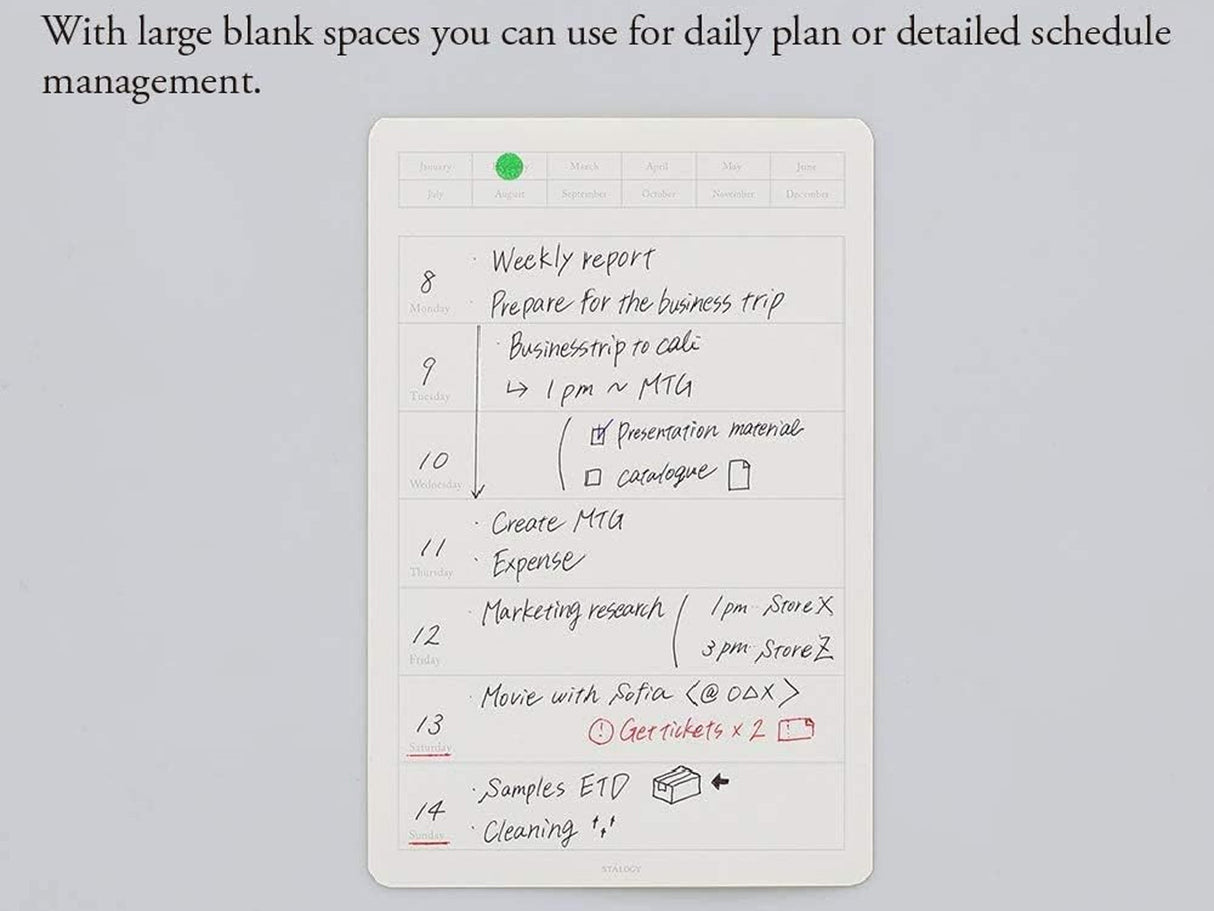 With large blank spaces you can use for daily plan or detailed schedule
management.
January March April May June
July August September October November December
8 Monday
· Weekly report
· Prepare for the business trip
9 Tuesday
· Businesstrip to cali
↳ 1pm ~ MTG
10 Wednesday
☑ Presentation material
☐ catalogue
11 Thursday
· Create MTG
· Expense
12 Friday
· Marketing research ( 1pm · Store X
3pm · Store Z
13 Saturday
· Movie with Sofia <@ O△X>
! Get tickets x 2
14 Sunday
· Samples ETD
· Cleaning
STÁLOGY